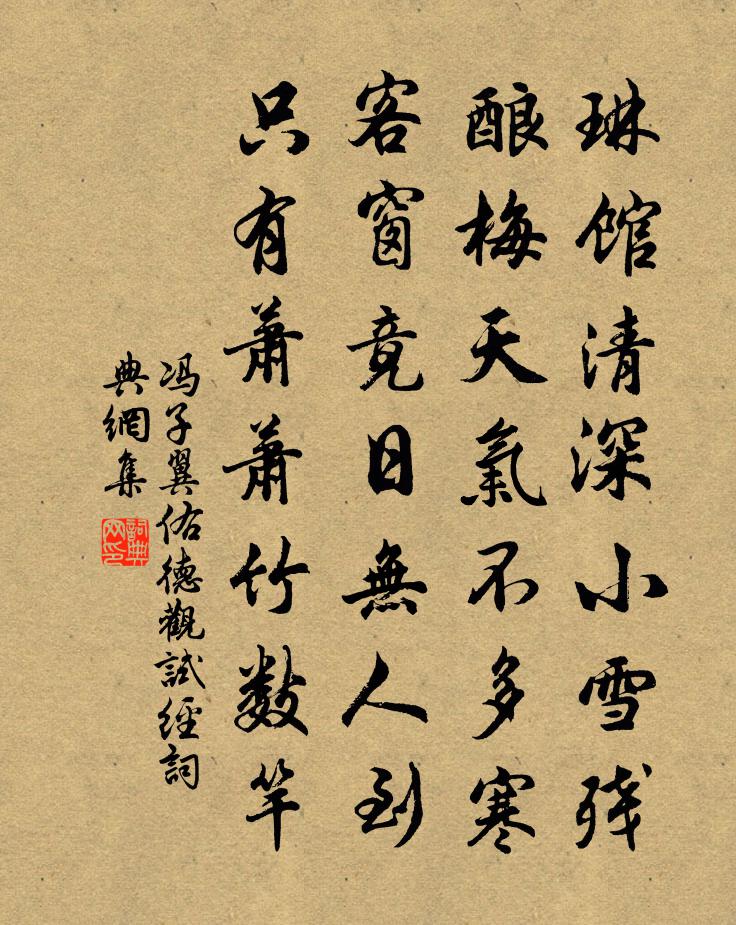 琳馆清深小雪残
酿梅天氣不多寒
客窗竟日無人到
只有萧萧竹数竿
冯子翼佑德觀試經詞
典網集
詞典
网印